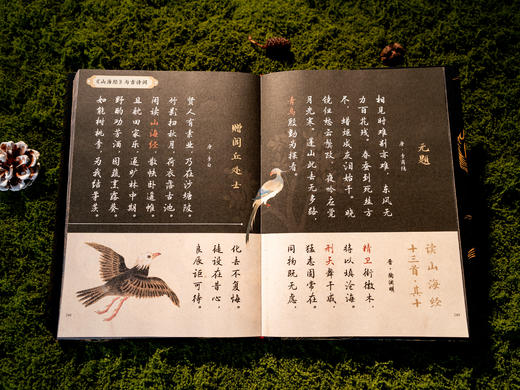 《山海经》与古诗词
无题
唐·李商隐
相见时难别亦难，东风无
力百花残。春蚕到死丝方
尽，蜡炬成灰泪始干。晓
镜但愁云鬓改，夜吟应觉
月光寒。蓬山此去无多路，
青鸟殷勤为探看。
赠闾丘处士
唐·李白
贤人有素业，乃在沙塘陂。
竹影扫秋月，荷衣落古池。
闲读山海经，散帙卧遥帷。
且耽田家乐，遂旷林中期。
野酌劝芳酒，园蔬烹露葵。
如能树桃李，为我结茅茨。
读山海经
十三首·其十
晋·陶渊明
精卫衔微木，
将以填沧海。
刑天舞干戚，
猛志固常在。
同物既无虑，
化去不复悔。
徒设在昔心，
良辰讵可待。